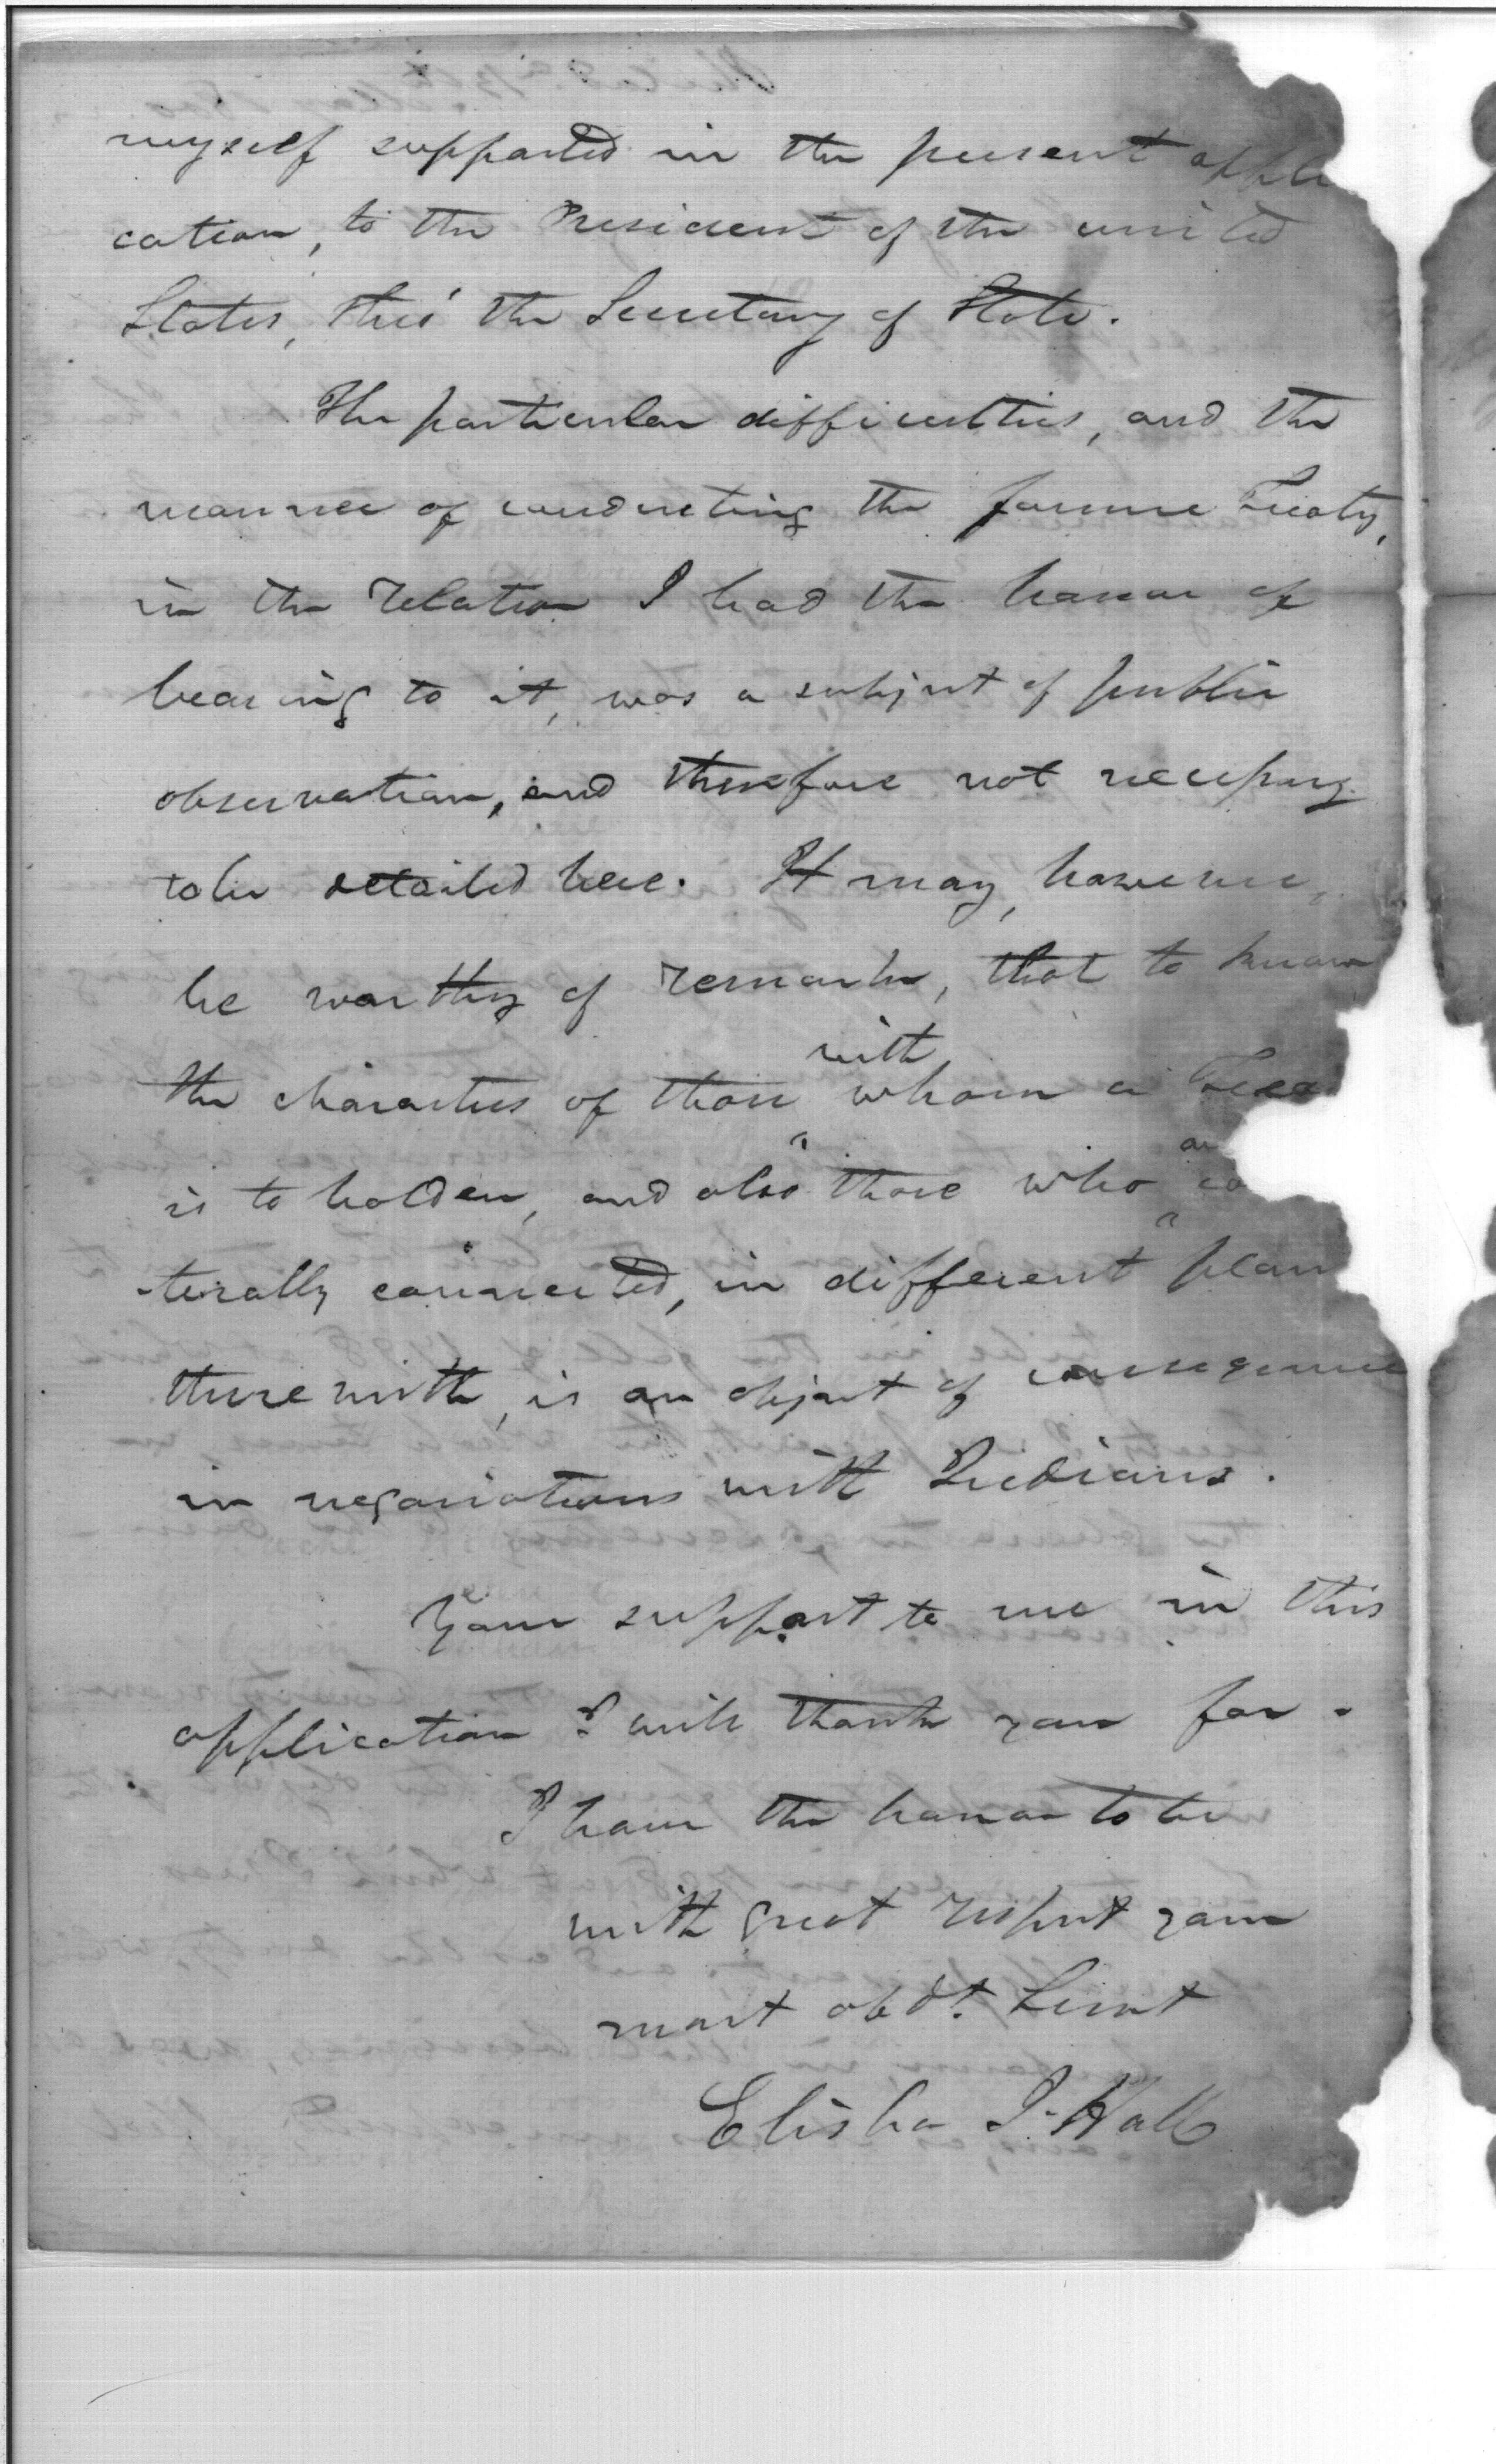 myself supported in the present appli
cation, to the President of the united
States, thro' the Secretary of State.
The particular difficulties, and the
manner of conducting the former Treaty,
in the relation I had the honour of
bearing to it, was a subject of public
observation, and therefore not necessary
to be detailed here. It may, however,
be worthy of remark, that to know
the characters of those with whom a Trea
is to holden, and also those who are co
-terally connected, in different plan
therewith, is an object of consequence
in negociations with Indians.
Your support to me in this
application I will thank you for.
I have the honor to be
with great respect your
most obdt. Servt
Elisha I. Hall